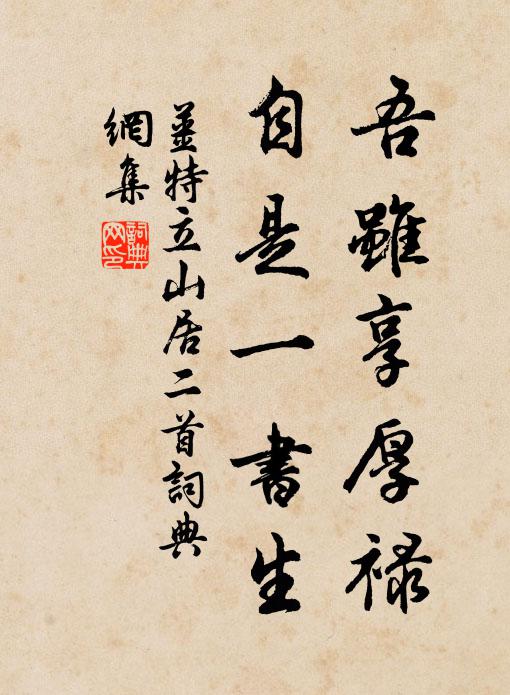 吾雖享厚祿
自是一書生
姜特立山居二首詞典
網集
詞典
网印